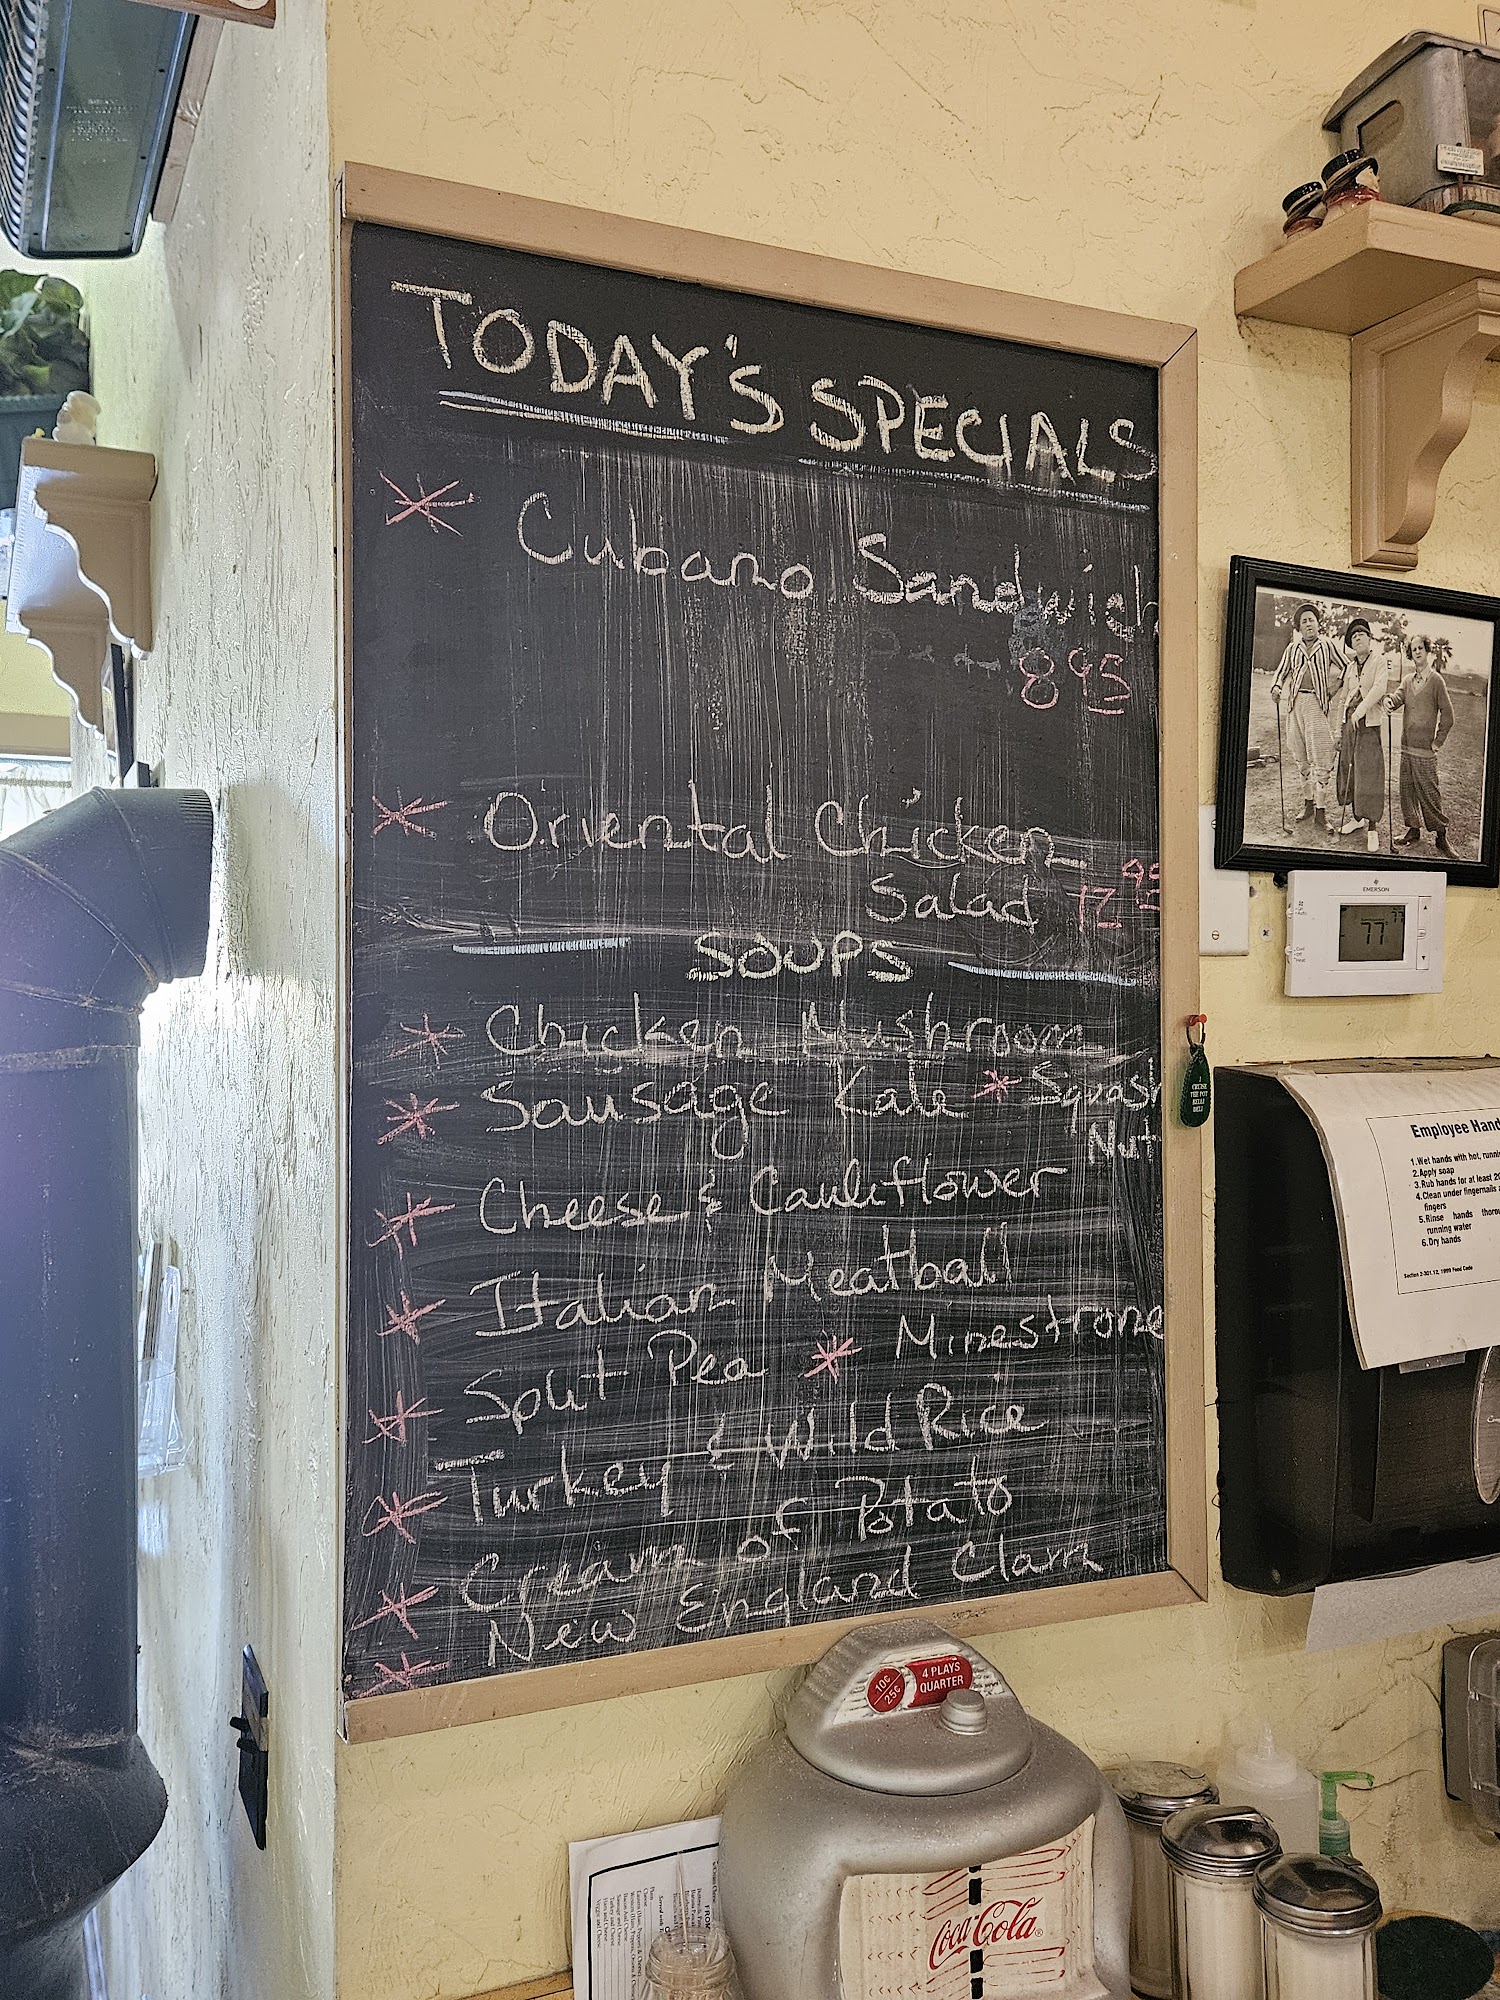 TODAY'S SPECIALS
* Cubano Sandwich
8 95
* Oriental Chicken
Salad 12 95
SOUPS
* Chicken Mushroom
* Sausage Kale * Squash
Nut
* Cheese & Cauliflower
* Italian Meatball
* Split Pea * Minestrone
* Turkey & Wild Rice
* Cream of Potato
* New England Clam
EMERSON
77
CRUISE
THE POT
BELLI
DELI
Employee Hand
1.Wet hands with hot, runni
2.Apply soap
3.Rub hands for at least 20
4.Clean under fingernails
fingers
5.Rinse hands thorou
running water
6.Dry hands
Section 2-301.12, 1999 Food Code
10¢
25¢
4 PLAYS
QUARTER
Coca-Cola
FROM